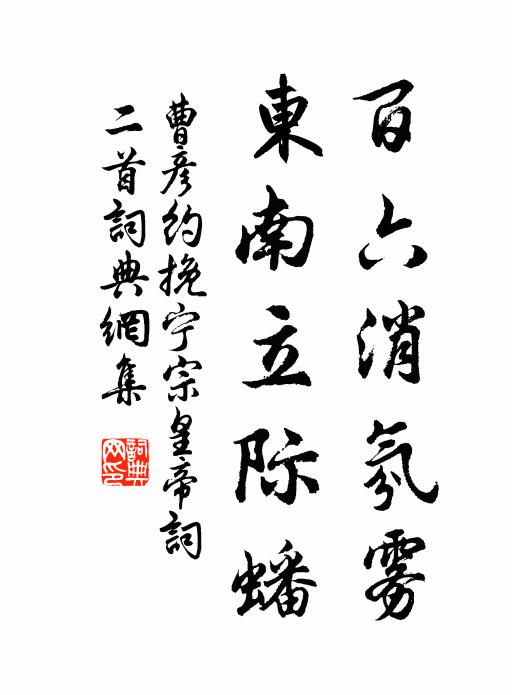 百六消氛雾
東南立际蟠
曹彦約挽宁宗皇帝詞
二首詞典網集
詞典
网印